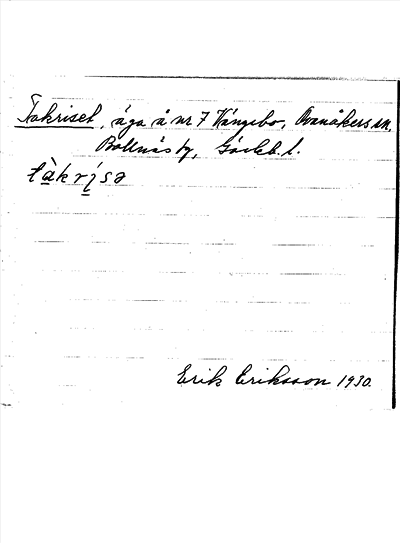 Takriset, äga å nr 7 Vängsbo, Ovanåkers sn,
Bollnäs tg, Gävleb. l.
tàkrísə
Erik Eriksson 1930.